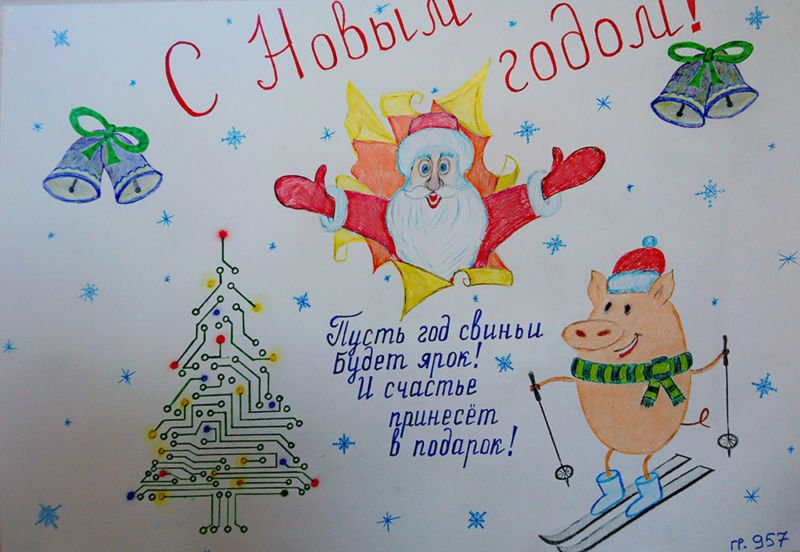 С Новым годом!
Пусть год свиньи
будет ярок!
И счастье
принесёт
в подарок!
гр. 957